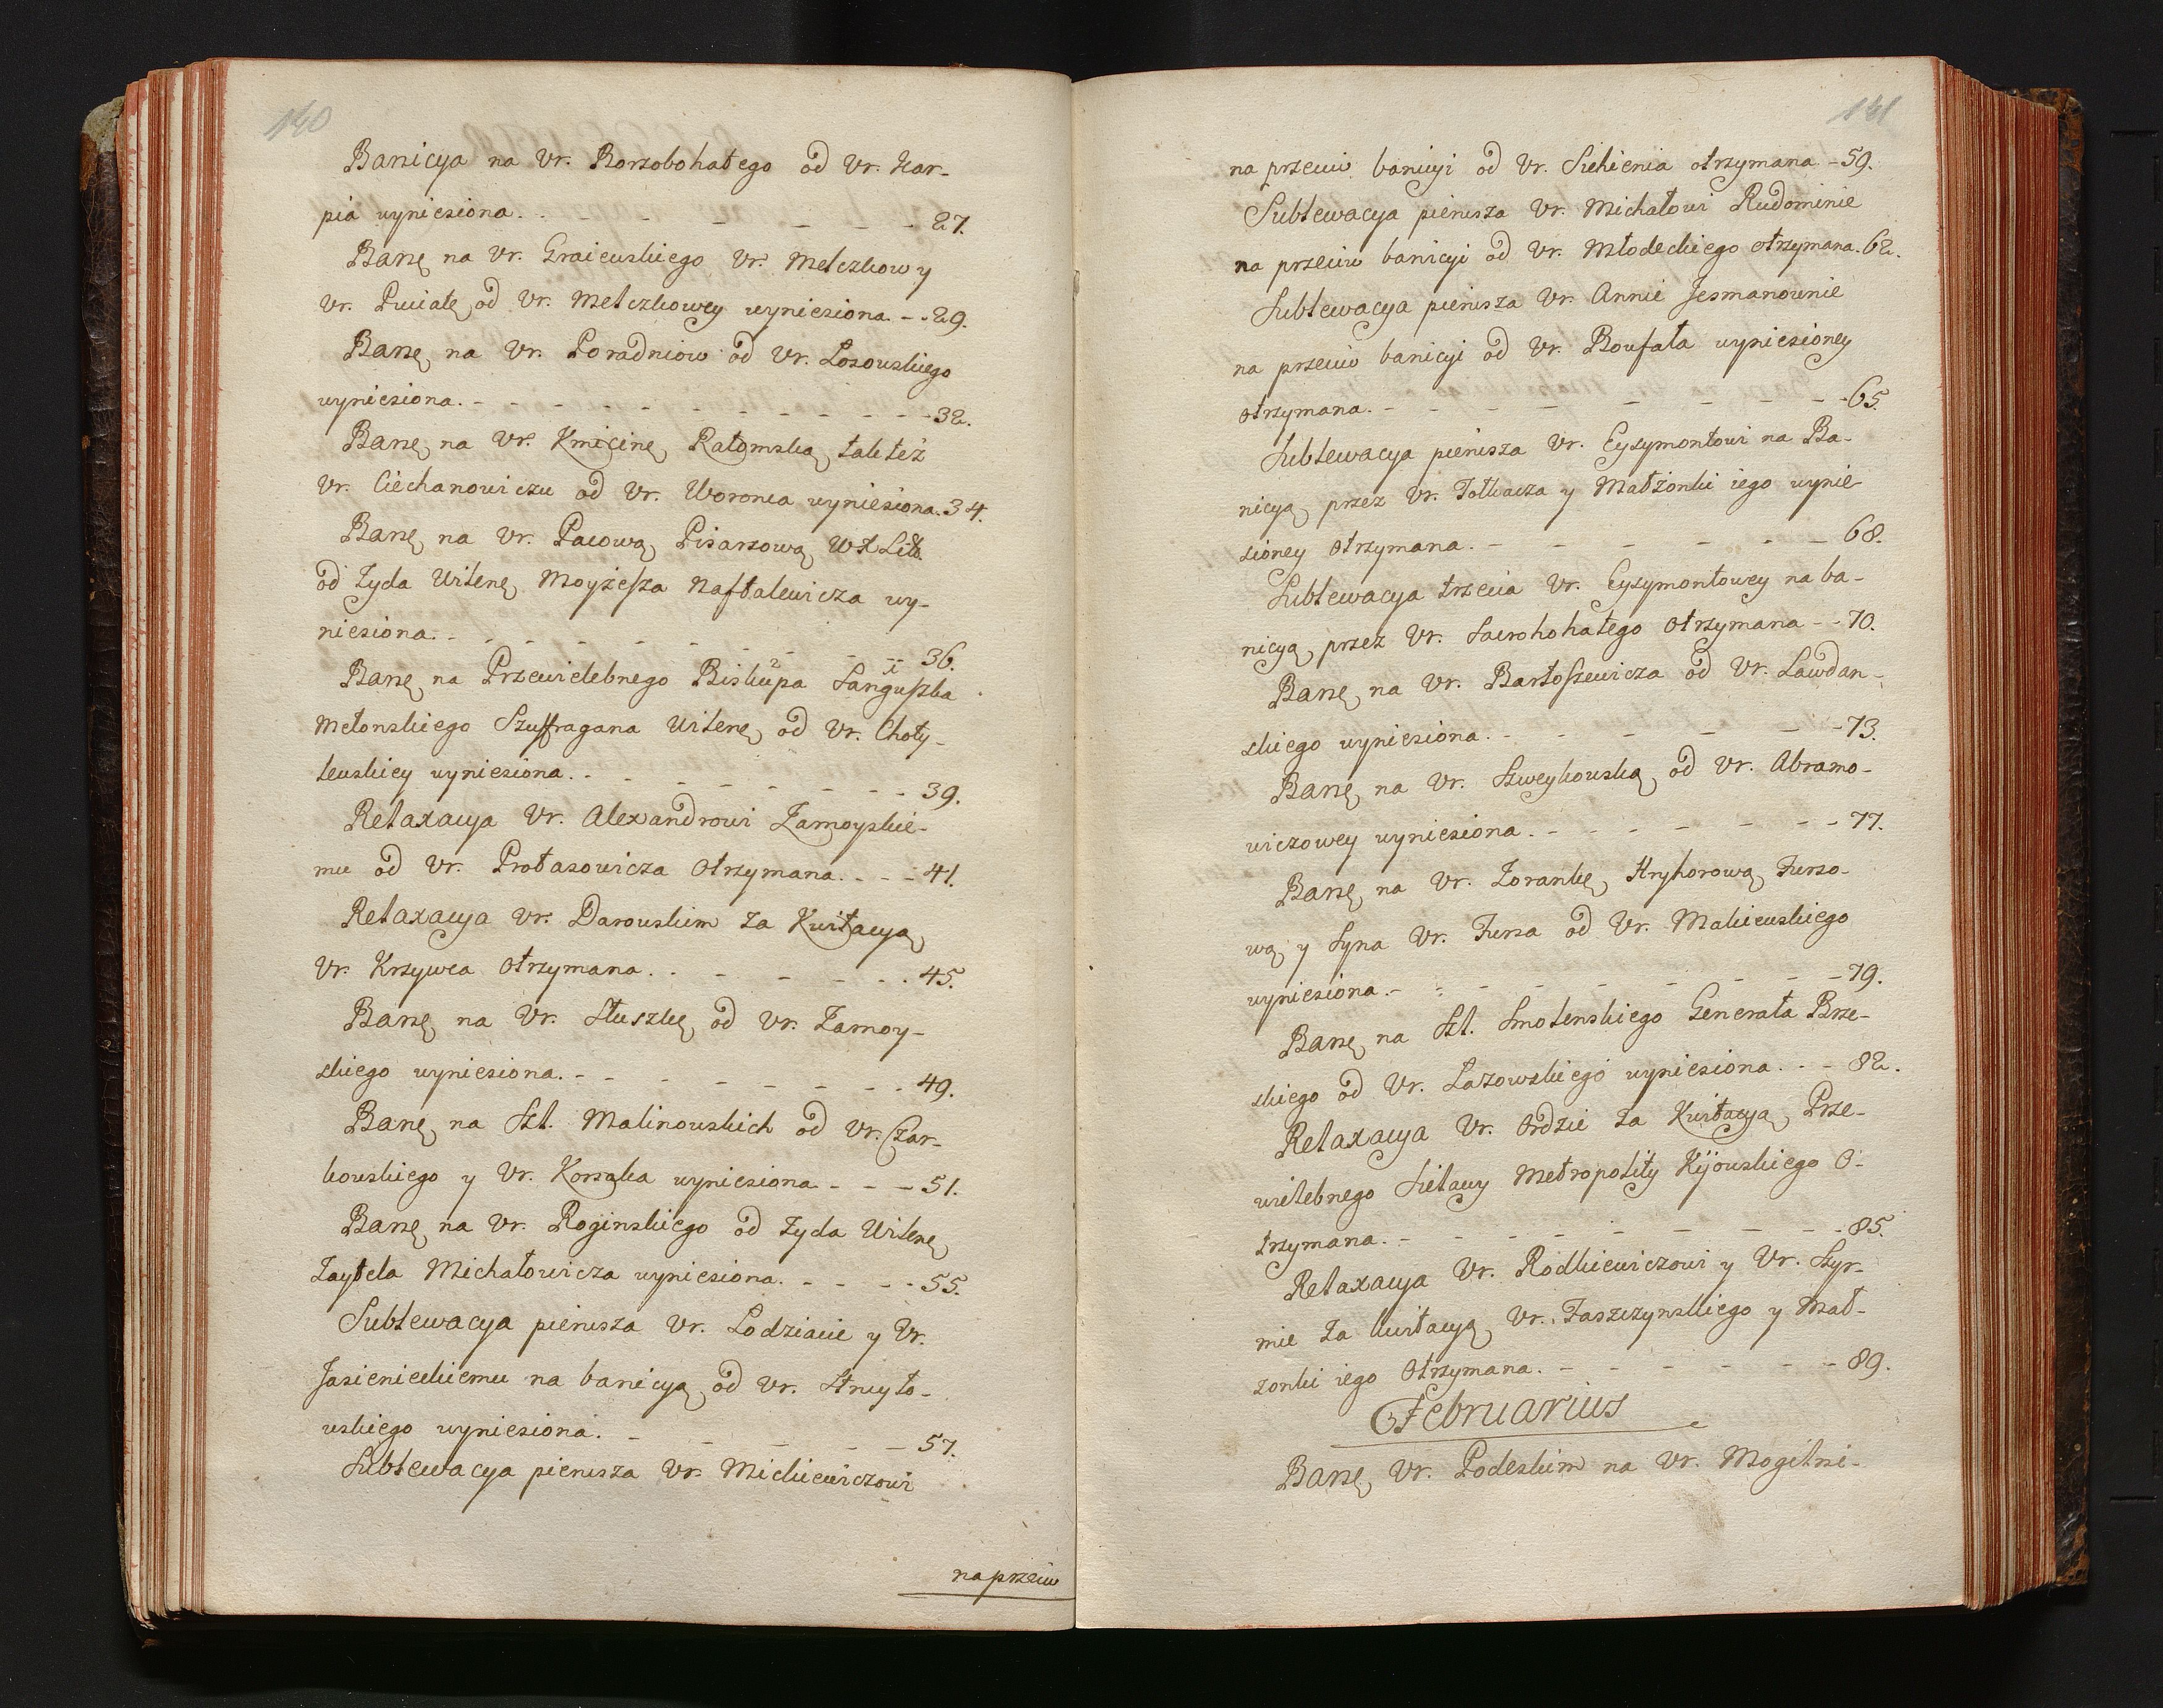 140
Banicya na Ur. Borzobohatego od Ur. Kar-
pia wyniesiona. - - - - - - - 27.
Banę na Ur. Graiewskiego Ur. Melczkow y
Ur. Puciatę od Ur. Melczkowey wyniesiona. - - 29.
Banę na Ur. Poradniow od Ur. Losowskiego
wyniesiona. - - - - - - - - - - 32.
Banę na Ur. Kmicinę, Ratomską, tak też
Ur. Ciechanowiczu od Ur. Woronca wyniesiona. 34.
Banę na Ur. Pacową Pisarzową WXLitt.
od Zyda Wilenę Moyżesza Naftalewicza wy-
niesiona. - - - - - - - - - 36.
Banę na Przewielebnego Biskupa Sanguszka
Metonskiego Szuffragana Wilenę od Ur. Choły-
lewskiey wyniesiona. - - - - - - - 39.
Relaxacya Ur. Alexandrowi Zamoyskie-
mu od Ur. Protasowicza otrzymana. - - - 41.
Relaxacya Ur. Darowskim za Kwitacyą
Ur. Krzywca otrzymana. - - - - - - 45.
Banę na Ur. Słuszkę od Ur. Zamoy-
skiego wyniesiona. - - - - - - - - 49.
Banę na Szl. Malinowskich od Ur. Czar-
kowskiego y Ur. Korsaka wyniesiona - - - 51.
Banę na Ur. Roginskiego od Zyda Wilenę
Zaytela Michałowicza wyniesiona. - - - - 55.
Sublewacya pierwsza Ur. Lodziacie y Ur.
Jasienieckiemu na banicyą od Ur. Strzyto-
wskiego wyniesiona. - - - - - 57.
Sublewacya pierwsza Ur. Mickiewiczowi
na przeciw
141
na przeciw banicyi od Ur. Siehienia otrzymana - 59.
Sublewacya pierwsza Ur. Michałowi Rudominie
na przeciw banicyi od Ur. Młodeckiego otrzymana. 62.
Sublewacya pierwsza Ur. Annie Jesmanownie
na przeciw banicyi od Ur. Boufała wyniesioney
otrzymana. - - - - - - - - - 65.
Sublewacya pierwsza Ur. Eysymontowi na Ba-
nicyą przez Ur. Tołkacza y Małżonki iego wynie-
sioney otrzymana. - - - - - - - 68.
Sublewacya trzecia Ur. Eysymontowey na ba-
nicyą przez Ur. Suchohatego otrzymana - - 70.
Banę na Ur. Bartoszewicza od Ur. Lawdan-
skiego wyniesiona. - - - - - - - 73.
Banę na Ur. Szweykowską od Ur. Abramo-
wiczowey wyniesiona. - - - - - - - 77.
Banę na Ur. Zorankę Hryhorową Furso-
wą y Syna Ur. Fursa od Ur. Makiewskiego
wyniesiona. - - - - - - - - - 79.
Banę na Szl. Smolenskiego Generała Brze-
skiego od Ur. Lazowskiego wyniesiona. - - 82.
Relaxacya Ur. Ordzie za Kwitacyą Prze-
wielebnego Sielawy Metropolity Kijowskiego O-
trzymana. - - - - - - - - - 85.
Relaxacya Ur. Rodkiewiczowi y Ur. Szyr-
mie za kwitacyą Ur. Faszczynskiego y Mał-
zonki iego Otrzymana. - - - - - - 89.
Februarius
Banę Ur. Podeskim na Ur. Mogilni-